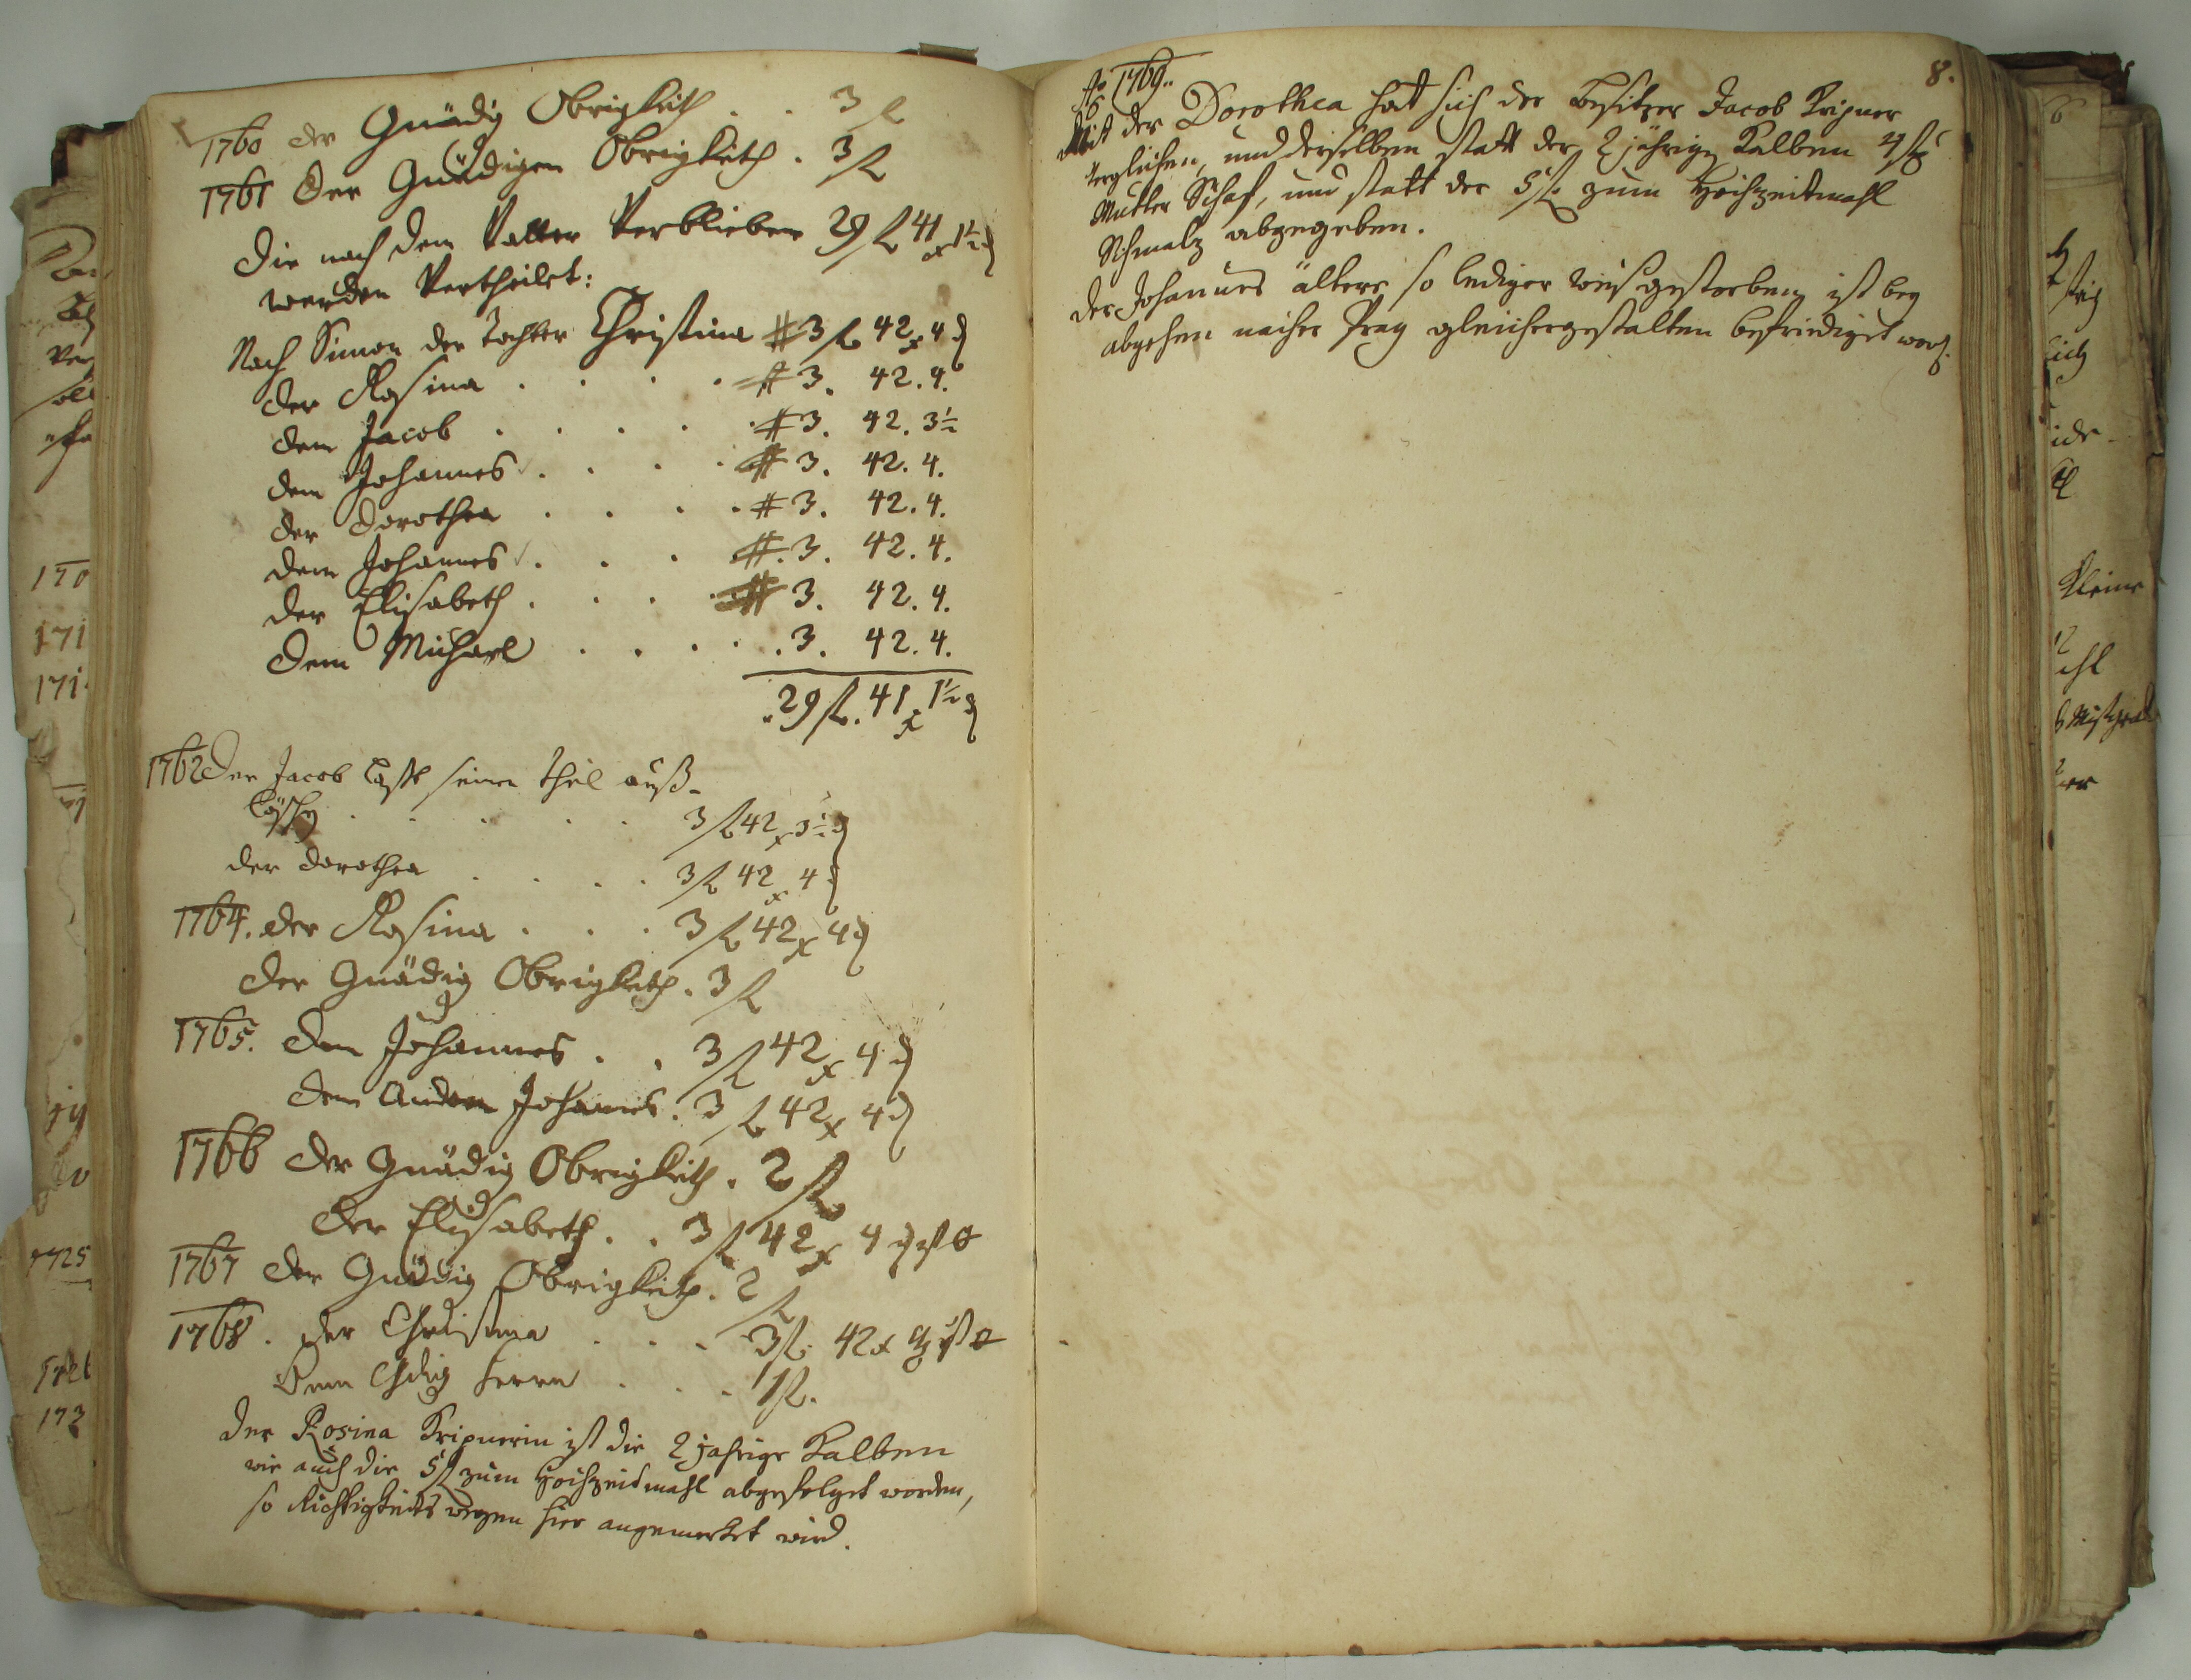 1760 der Gnädig Obrigkeith . . 3 fl
1761 der Gnädigen Obrigkeith . 3 fl
Die nach dem Vatter Verblieben 29 fl 41 x 1½ d
werden Vertheilet:
Nach Simon der Tochter Christina # 3 fl 42 x 4 d
der Rosina . . . . # 3. 42. 4.
dem Jacob . . . . # 3. 42. 3½
dem Johannes . . . . # 3. 42. 4.
der Dorothea . . . . # 3. 42. 4.
dem Johannes . . . #. 3. 42. 4.
der Elisabeth . . . . # 3. 42. 4.
dem Michael . . . . . 3. 42. 4.
29 fl. 41 x 1½ d
1762 der Jacob seinen theil auß-
. . . . . 3 fl 42 x 3½ d
der Dorothea . . . . 3 fl 42 x 4 d
1764. der Rosina . . . 3 fl 42 x 4 d
der Gnädig Obrigkeith . 3 fl
1765. dem Johannes . . 3 fl 42 x 4 d
dem Andern Johannes . 3 fl 42 x 4 d
1766 der Gnädig Obrigkeith . 2 fl
der Elisabeth . . 3 fl 42 x 4 d
1767 der Gnädig Obrigkeith . 2 fl
1768 . der Christina . . . 3 fl. 42 x 4 d
Herrn . . . 1 fl.
der Rosina Kripnerin ist die 2 jahrige Kalben
wie auch die 5 fl zum Hochzeitmahl abgefolget worden,
so Richtigkeits wegen hier angemerket wird.
8.
Ao 1769..
Mit der Dorothea hat sich der Besitzer Jacob Kripner
verglichen, und derselben statt der 2 jährige Kalben 4 st
Mutter Schaf, und statt der 5 fl zum Hochzeitmahl
Schmalz abgegeben.
der Johannes ältere so lediger weiß gestorben ist bey
abgehen nacher Prag gleichergestalten befriediget word.